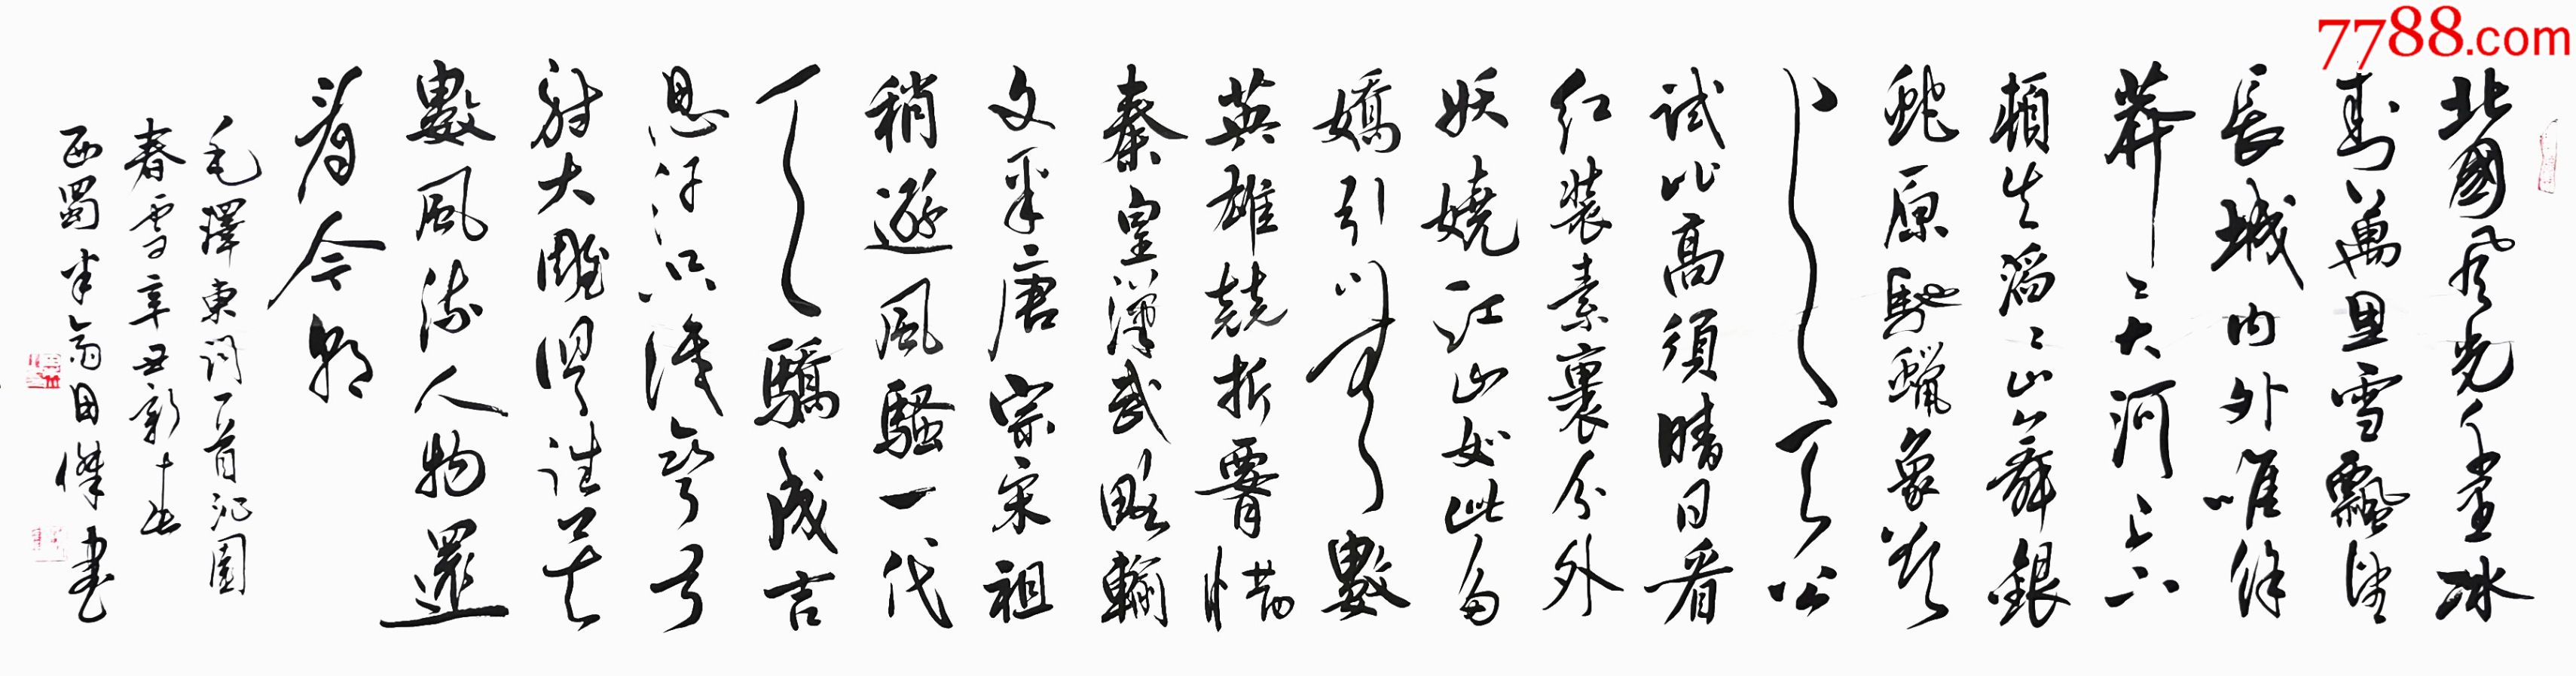 7788.com
北國風光千里冰
封萬里雪飄望
長城內外唯餘
莽〻大河上下
頓失滔〻山舞銀
蛇原馳蠟象欲
與天公
試比高須晴日看
紅裝素裹分外
妖嬈江山如此多
嬌引無數
英雄競折腰惜
秦皇漢武略輸
文采唐宗宋祖
稍遜風騷一代
天驕成吉
思汗只識彎弓
射大雕俱往矣
數風流人物還
看今朝
毛澤東詞一首沁園
春雪辛丑新春
西蜀半翁田傑書